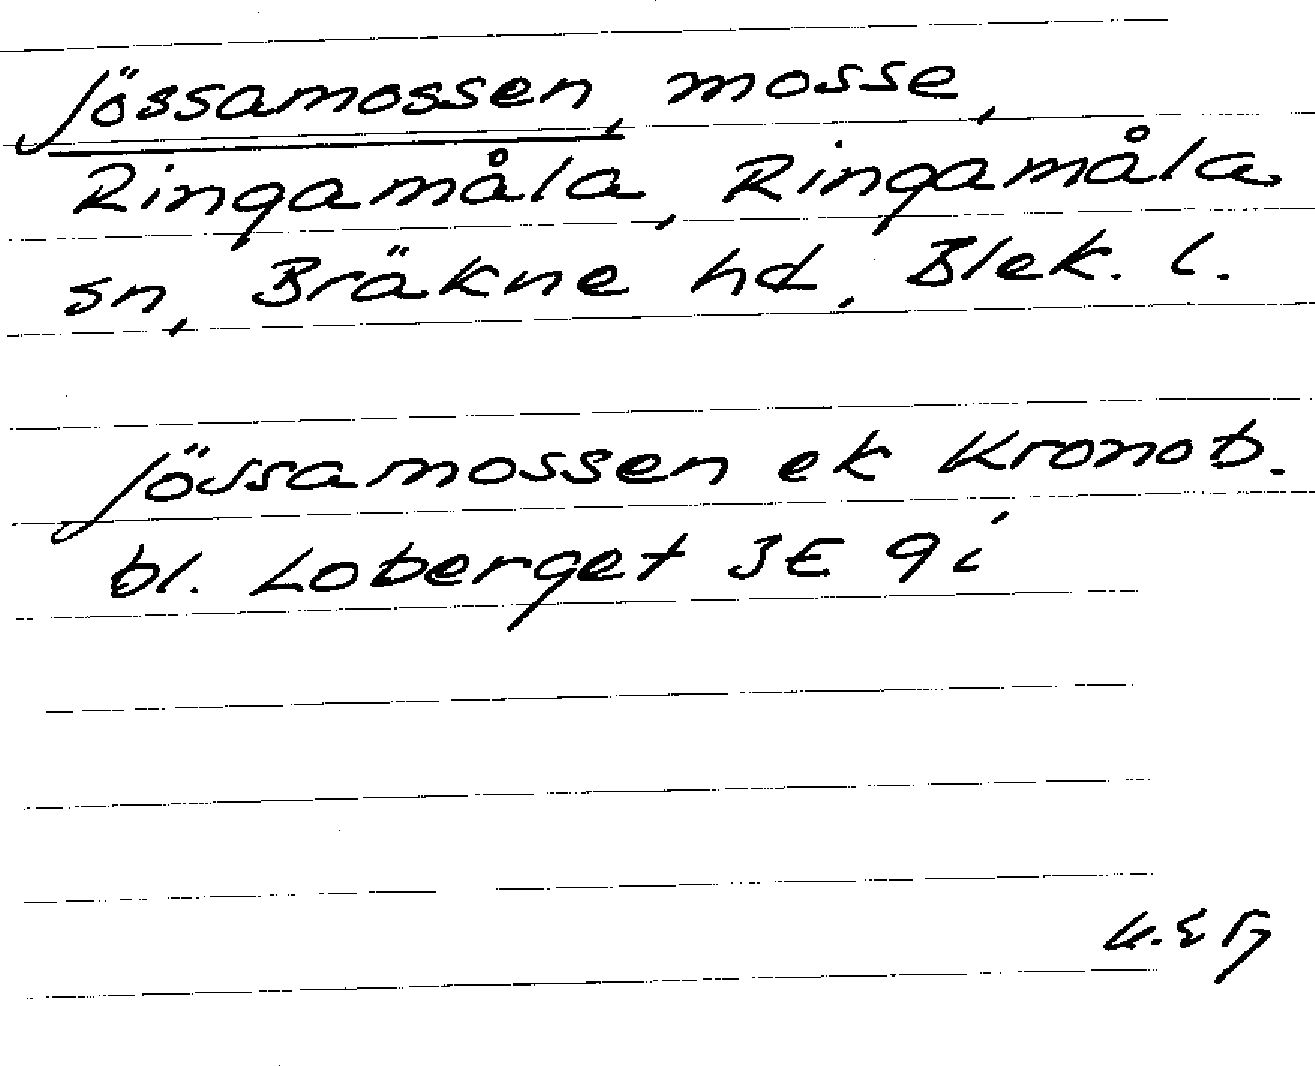 Jössamossen, mosse,
Ringamåla, Ringamåla
sn, Bräkne hd, Blek. l.
Jössamossen ek Kronob.
bl. Loberget 3E 9i